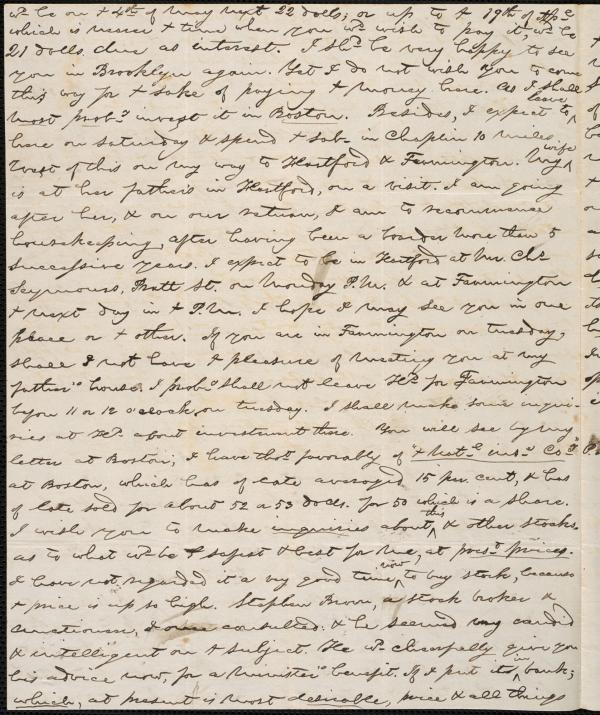 wd. be on + 4th of May next 22 dolls; or up to + 19th of
which is nearer + time when you wd. wish to pay it, wd. be
21 dolls due as interest. I shd. be very happy to see
you in Brooklyn again. Yet I do not wish you to come
this way for + sake of paying + money here. As I shall
most prob.y invest it in Boston. Besides, I expect to leave
here on saturday & spend + sab. in Chaplin 10 miles
West of this on my way to Hartford & Farmington. My wife
is at her father's in Hartford, on a visit. I am going
after her, & on our return, I am to recommence
housekeeping, after having been a boarder more than 5
successive years. I expect to be in Hartford at Mr. Chs.
Seymours, Pratt St. on Monday P.M. & at Farmington
+ next day in + P.M. I hope I may see you in one
place or + other. If you are in Farmington on tuesday,
shall I not have + pleasure of meeting you at my
father's house. I prob.y shall not leave Hd. for Farmington
before 11 or 12 o'clock, on tuesday. I shall make some inqui-
ries at Hd. about investment there. You will see by my
letter at Boston, I have thot. favorably of "+ Natl. insr. Co.y"
at Boston, which has of late averaged 15 per. cent, & has
of late sold for about 52 a 53 dolls. for 50 which is a share.
I wish you to make inquiries about this, & other stocks
as to what wd. be + safest & best for me, at prest. prices.
I have not regarded it a very good time now, to buy stock, because
+ price is up so high. Stephen Brown, a stock broker &
auctioneer, I once consulted. & he seemed very candid
& intelligent on + subject. He wd. cheerfully give you
his advice now, for a minister's benefit. If I put it in bank;
which, at present is most desirable, price & all things